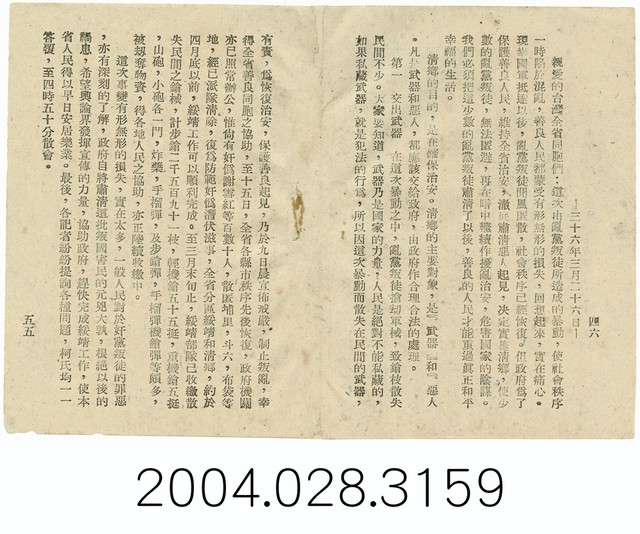 四六
——三十六年三月二十六日——
親愛的台灣全省同胞們：這次由亂黨叛徒所造成的暴動，使社會秩序
一時陷於混亂，善良人民都蒙受有形無形的損失，回想起來，實在痛心。
現幸國軍抵達以後，亂黨叛徒聞風匿散，社會秩序已經恢復。但政府爲了
保護善良人民，維持全省治安，澈底肅清惡人起見，決定實施清鄉，使少
數的亂黨叛徒，無法匿避，再在暗中繼續作擾亂治安，危害國家的陰謀。
我們必須把這少數的亂黨叛徒肅清了以後，善良的人民才能重過眞正和平
幸福的生活。
清鄉的目的，是在確保治安。清鄉的主要對象，是「武器」和「惡人」
。凡是武器和惡人，都應該交給政府，由政府作合理合法的處理。
第一　交出武器　在這次暴動之中，亂黨叛徒搶刼軍械，致鎗枝散失
民間不少。大家要知道，武器乃是國家的力量，人民是絕對不能私藏的，
如果私藏武器，就是犯法的行爲，所以因這次暴動而散失在民間的武器，
有責，爲恢復治安，保護善良起見，乃於九日晨宣佈戒嚴，制止叛亂，幸
得全省善良同胞之協助，至十五日，全省各縣市秩序先後恢復，政府機關
亦已照常辦公，惟尙有奸僞謝雪紅等百數十人，散匿埔里，斗六，布袋等
地，經已派隊清除，復爲防範奸僞潛伏滋事，全省分區綏靖和清鄉，約於
四月底以前，綏靖工作可以順利完成。至三月末旬止，綏靖部隊已收繳散
失民間之鎗械，計步鎗二千五百九十一枝，輕機鎗五十五挺，重機鎗五挺
，山砲，小砲各一門，炸藥，手榴彈，及步鎗彈，手榴彈機鎗彈等頗多，
被刼奪物資，得各地人民之協助，亦正陸續收繳中。
這次事變有形無形的損失，實在太多，一般人民對於奸黨叛徒的罪惡
，亦有深刻的了解，政府自將肅清這批叛國害民的元兇大憝，根絕以後的
禍患，希望輿論界發揮宣傳的力量，協助政府，趕快完成綏靖工作，使本
省人民得以早日安居樂業。最後，各記者紛紛提詢各種問題，柯氏均一一
答復，至四時五十分散會。
五五
2004.028.3159